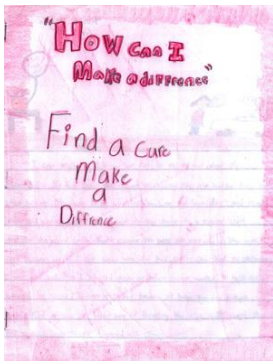 "How Can I
Make a difference"
Find a Cure
Make
a
Diffrence